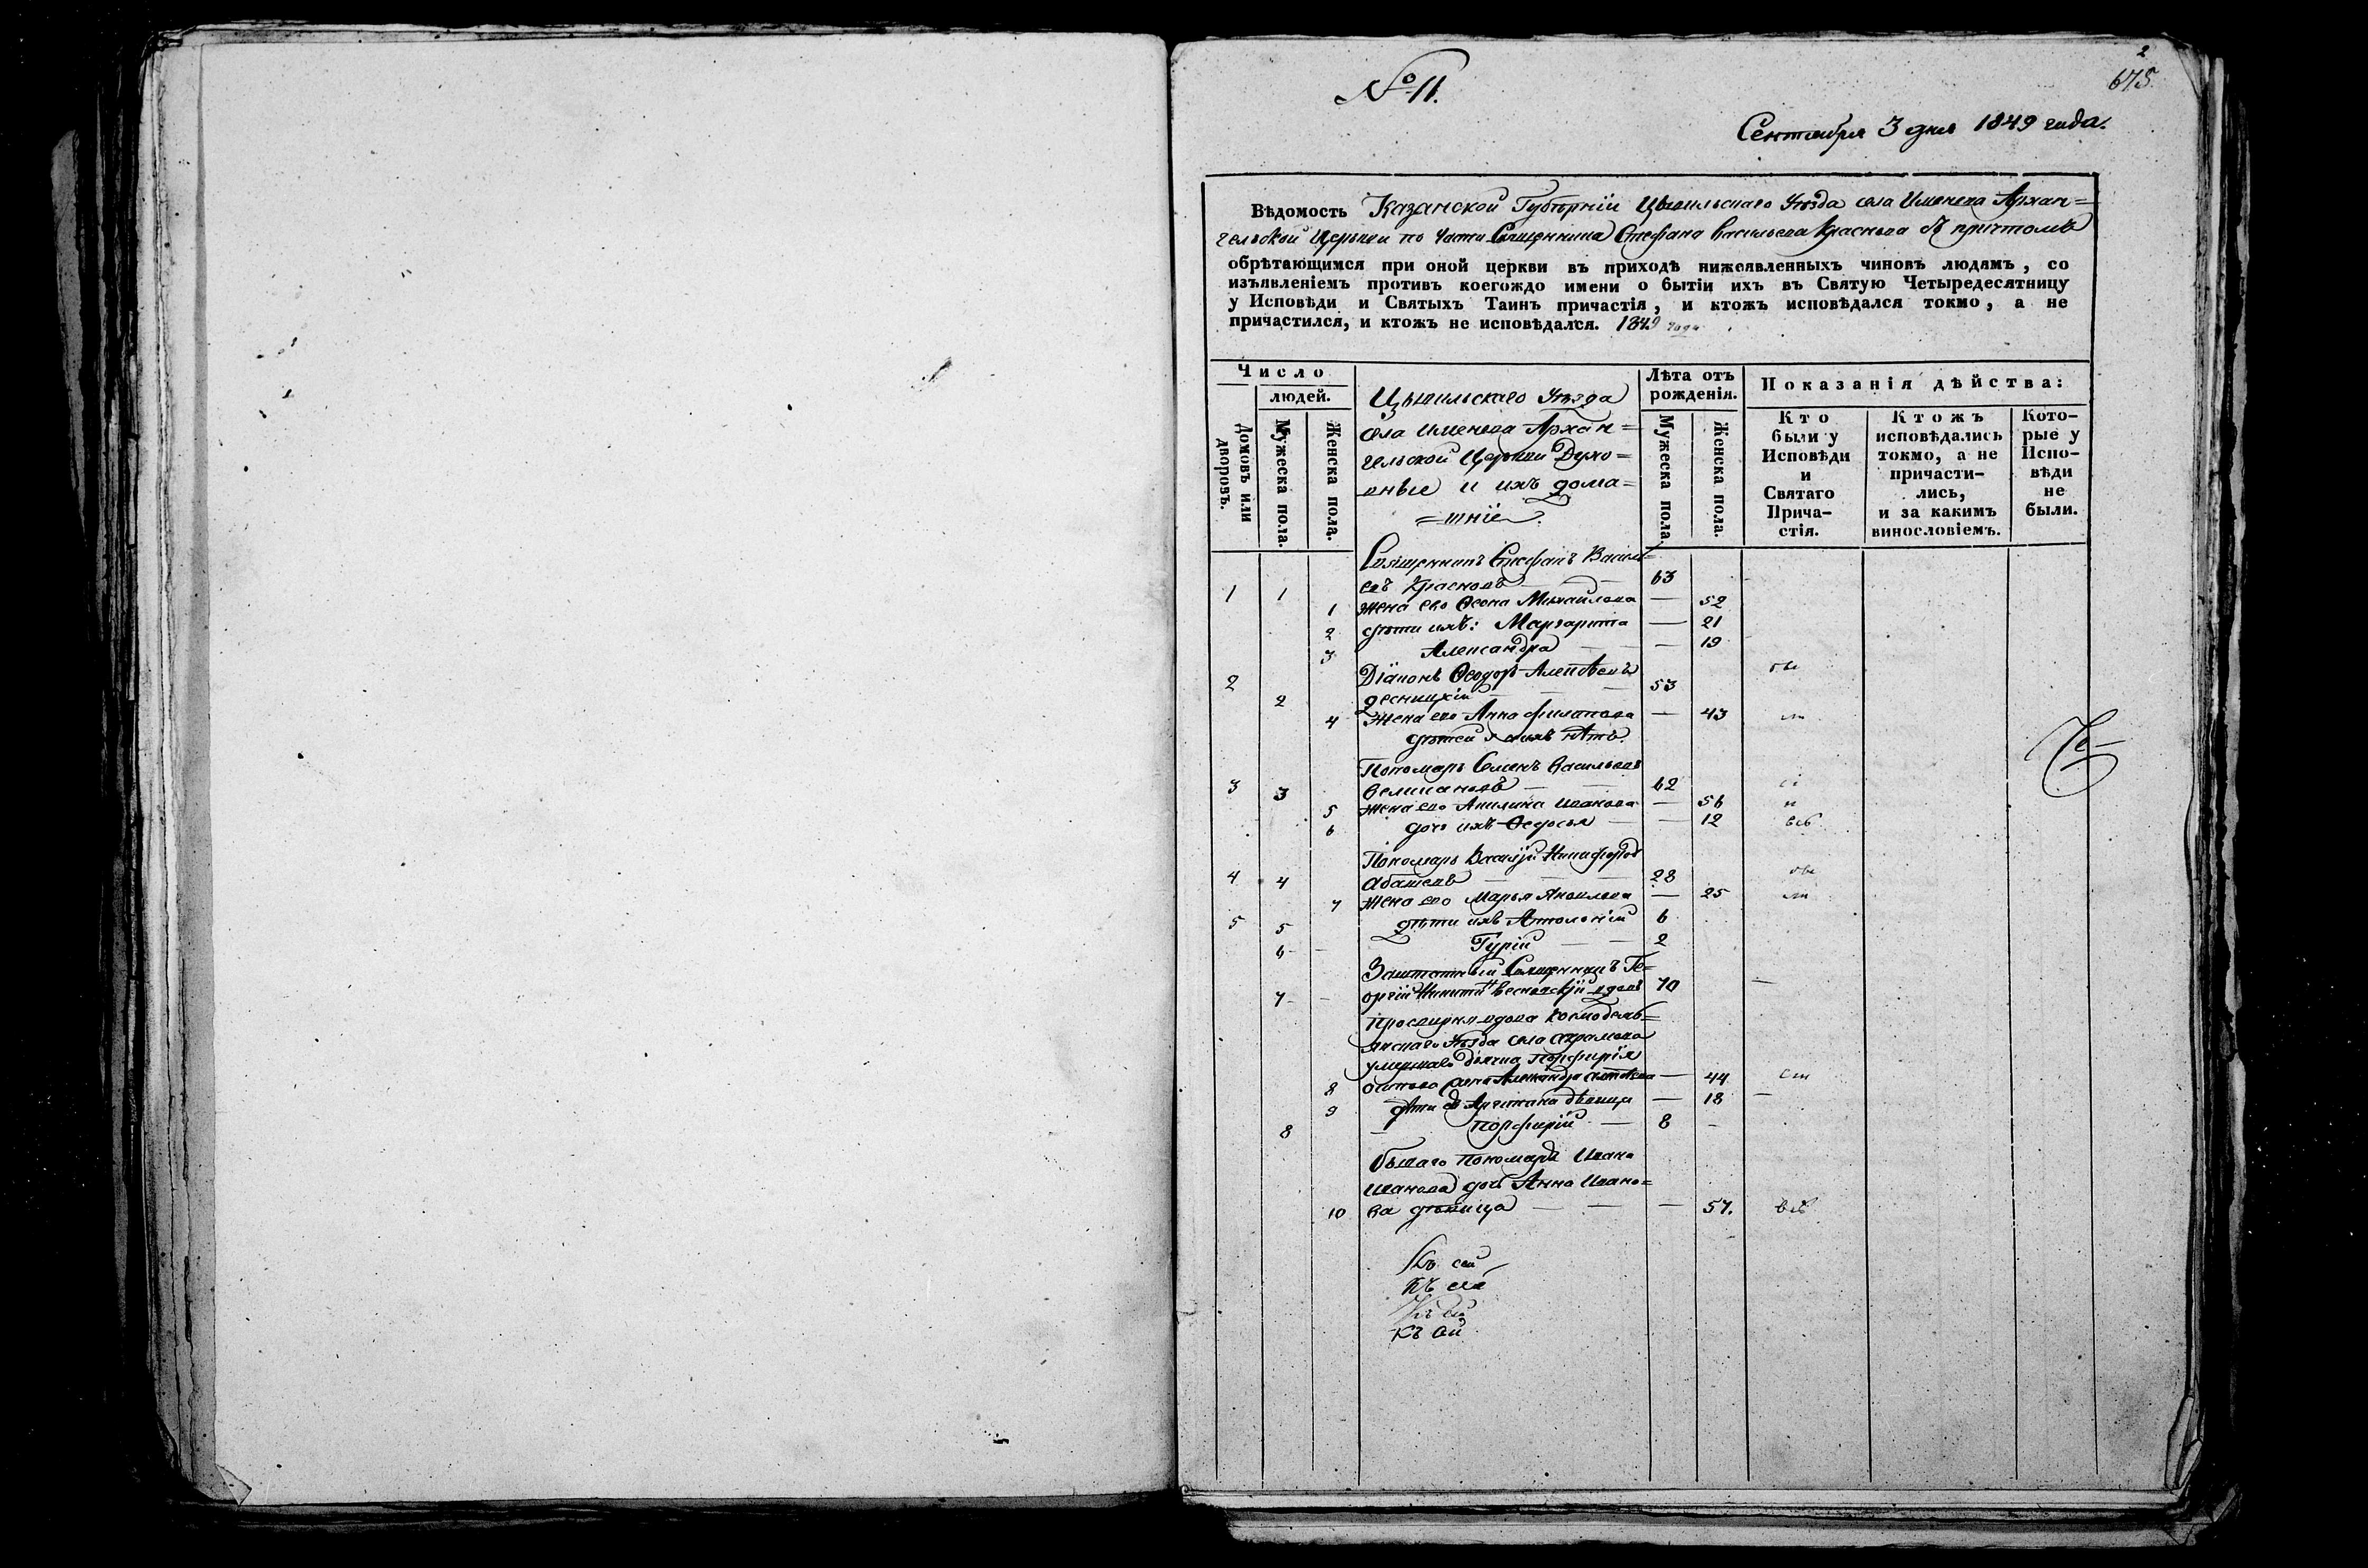 2
675
№ 11.
Сентября 3 дня 1849 года.
Вѣдомость Казанской Губерніи Цывильскаго Уѣзда села Именева Архан=
гельской Церкви по части Священника Стефана Васильева Краснова съ причтомъ
обрѣтающимся при оной церкви въ приходѣ нижеявленныхъ чиновъ людямъ, со
изъявленіемъ противъ коегождо имени о бытіи ихъ въ Святую Четыредесятницу
у Исповѣди и Святыхъ Таинъ причастія, и ктожъ исповѣдался токмо, а не
причастился, и ктожъ не исповѣдался. 1849 года
Число
людей.
Домовъ или дворовъ.
Мужеска пола.
Женска пола.
Цывильскаго Уѣзда
села Именева Архан=
гельской Церкви Духо=
вные и ихъ дома=
=шніе.
Лѣта отъ рожденія.
Мужеска пола
Женска пола.
Показанія дѣйства:
Кто были у Исповѣди и Святаго Прича-стія.
Ктожъ исповѣдались токмо, а не причасти-лись, и за какимъ винословіемъ.
Кото-рые у Испо-вѣди не были.
Священникъ Стефанъ Василь=
1 1 евъ Красновъ — 63
1 жена его Ѳеона Михайлова — 52
2 дѣти ихъ: Маргарита — 21
3 Александра — — 19
2 Діаконъ Ѳеодоръ Алексѣевъ
2 Десницкій — 53
4 Жена его Анна Филипова — 43
дѣтей у нихъ нѣтъ.
Пономарь Семенъ Васильевъ
3 3 Великановъ — 62
5 жена его Акилина Иванова — 56
6 дочь ихъ Ѳедосья — — 12
Пономарь Василій Никифоровъ
4 4 Абашевъ — 28
7 жена его Марья Яковлева — 25
5 5 дѣти ихъ Анатолній 6
6 - Гурій — 2
Заштатный Священникъ Ге=
7 - оргій Никитинъ вдовъ 70
Просвирня вдова Козмодемь=
янскаго Уѣзда села
умершаго Дьячка Порфирія
8 Осипова жена Александра — 44
9 дѣти ея дѣвица — 18
8 Порфирій — 8
бывшаго Пономаря Ивана
Иванова дочь Анна Ивано=
10 ва дѣвица — — 57.
Къ сей
Къ
Къ
Къ